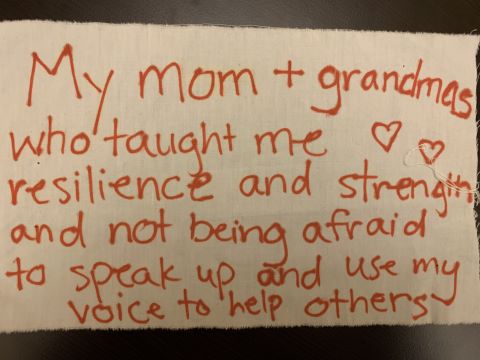 My mom + grandmas
who taught me ♡ ♡
resilience and strength
and not being afraid
to speak up and use my
voice to help others